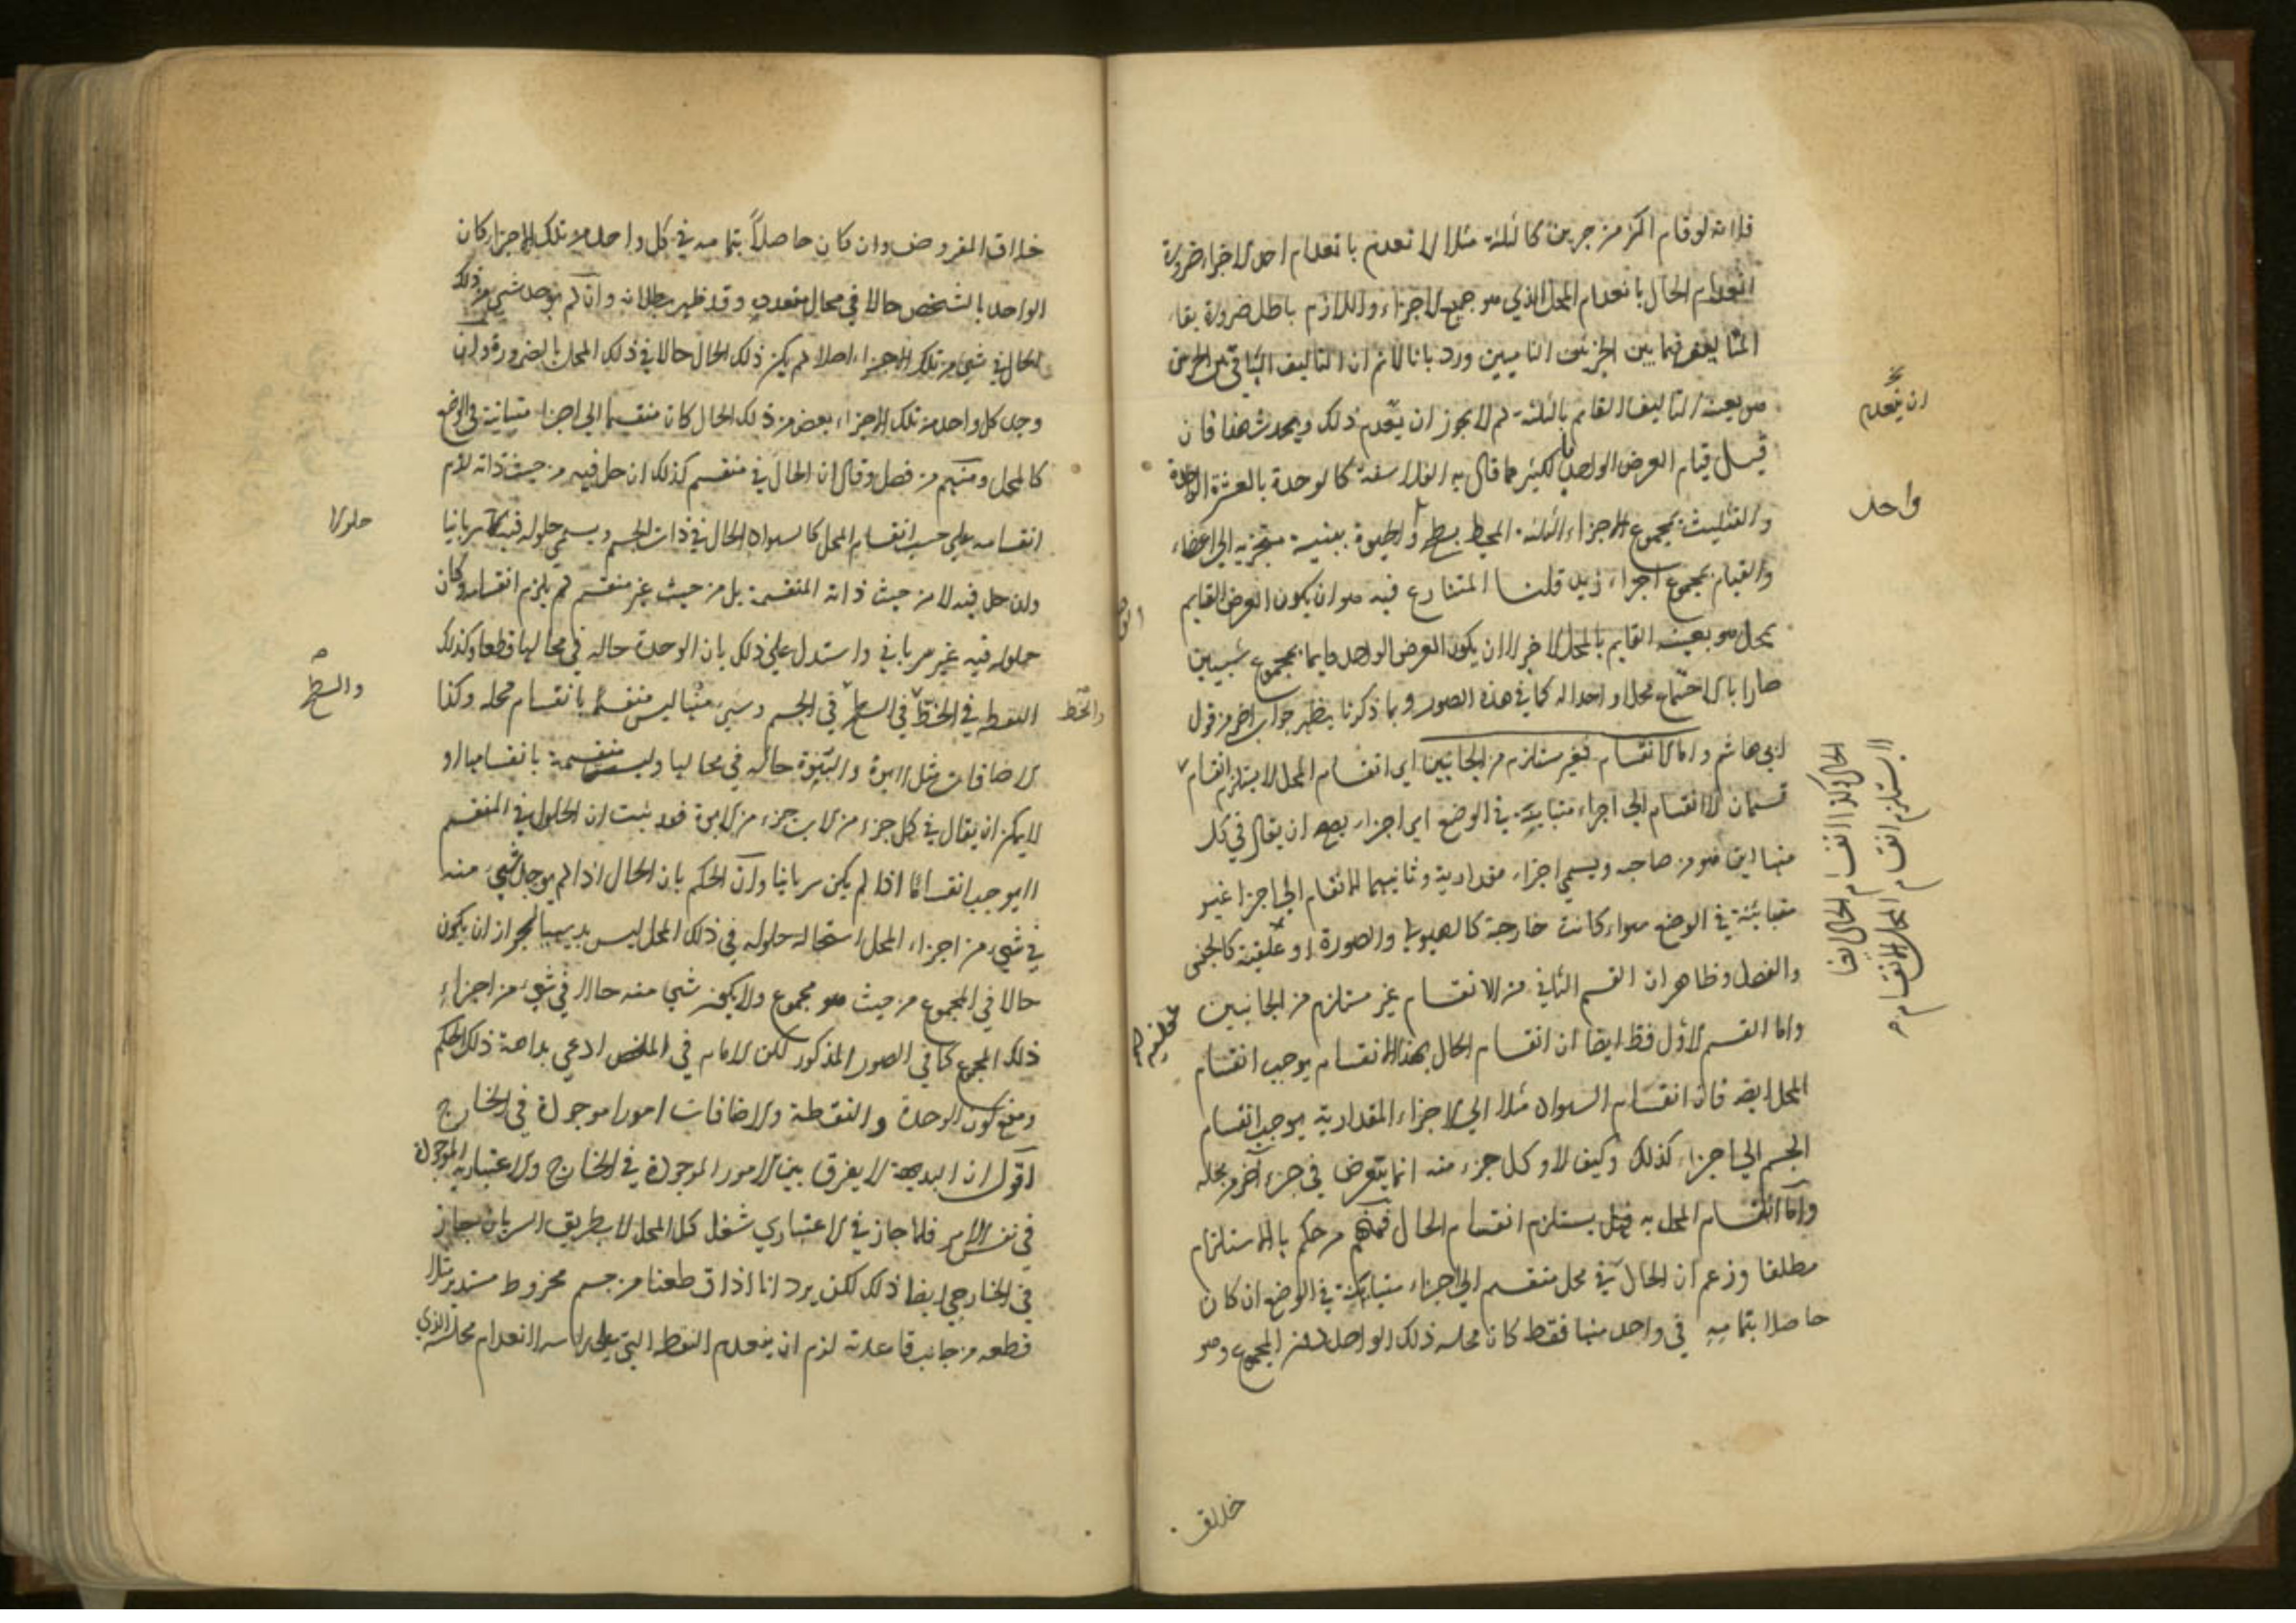 فلانه لو قام اكثر من جزئين كالثلثة مثلا لانعدم بانعدام احد الاجزاء ضرورة
انعدام الحال بانعدام المحل الذي هو جميع الاجزاء واللازم باطل ضرورة بقاء
التأليف فيما بين الجزئين الباقيين ورد بانا لا نم ان التأليف الباقي بين الجزئين
هو بعينه التأليف القائم بالثلثة لم لا يجوز ان ينعدم ذلك ويحدث هذا فان
قيل قيام العرض الواحد بالكثير مما قال به الفلاسفة كالوحدة بالعشرة الواحدة
والتثليث بمجموع الاجزاء الثلثة المحيطة بسطح والحيوة ببنية متجزية الى اعضاء
والقيام بمجموع اجزاء زيد قلنا المتنازع فيه هو ان يكون العرض القايم
بمحل هو بعينه القايم بالمحل الاخر لا ان يكون العرض الواحد قايما بمجموع شيئين
صارا بالاجتماع محلا واحدا له كما في هذه الصور وبما ذكرنا يظهر جواب اخر من قول
ابي هاشم واما الانقسام فغير مستلزم من الجانبين اي انقسام المحل لا يستلزم انقسام
قسمان الانقسام الى اجزاء متباينة في الوضع اي اجزاء يصح ان يقال في كل
منها اين هو من صاحبه ويسمى اجزاء مقدارية وثانيهما الانقسام الى اجزا غير
متباينة في الوضع سواء كانت خارجة كالهيولى والصورة او عقلية كالجنس
والفصل وظاهر ان القسم الثاني من الانقسام غير مستلزم من الجانبين
واما القسم الاول فظ ايضا ان انقسام الحال بهذا الانقسام يوجب انقسام
المحل ايضه فان انقسام السواد مثلا الى الاجزاء المقدارية يوجب انقسام
الجسم الى اجزاء كذلك وكيف لا وكل جزء منه انما يتعرض في جزء آخر من محله
واما انقسام المحل به فهل يستلزم انقسام الحال فمنهم من حكم بالاستلزام
مطلقا وزعم ان الحال في محل منقسم الى اجزاء متباينة في الوضع ان كان
حاصلا بتمامه في واحد منها فقط كان محله ذلك الواحد لا المجموع وهو
خلاف
ان ينعدم
واحد
الحال وكذا انقسام الحال ايضا
لا يستلزم انقسام المحل الانقسام
خلاف المفروض وان كان حاصلاً بتمامه في كل واحد من تلك الاجزاء كان
الواحد بالشخص حالا في محال متعددة وقد ظهر بطلانه وان لم يوجد شيء من ذلك
الحال في شيء من تلك الاجزاء اصلا لم يكن ذلك الحال حالا في ذلك المحل بالضرورة وان
وجد كل واحد من تلك الاجزاء بعض من ذلك الحال كان منقسما الى اجزاء متباينة في الوضع
كالمحل ومنهم من فصل وقال ان الحال في منقسم كذلك ان حل فيه من حيث ذاته لزم
انقسامه على حسب انقسام المحل كالسواد الحال في ذات الجسم ويسمى حلوله فيه سريانيا
وان حل فيه لا من حيث ذاته المنقسمة بل من حيث غير منقسم لم يلزم انقسامه وكان
حلوله فيه غير سرياني واستدل على ذلك بان الوحدة حاله في محالها قطعا وكذلك
النقطه في الخط في السطح في الجسم وشيء منها ليس منقسما بانقسام محله وكذا
الاضافات مثل الابوة والبنوة حاله في محالها وليست منقسمة بانقسامها او
لا يمكن ان يقال في كل جزء من الاب جزء من الابوة فقد ثبت ان الحلول في المنقسم
لا يوجب انقسامًا اذا لم يكن سريانيا وان الحكم بان الحال اذا لم يوجد شيء منه
في شيء من اجزاء المحل استحاله حلوله في ذلك المحل ليس بديهيا لجواز ان يكون
حالا في المجموع من حيث هو مجموع ولا يكون شيء منه حالا في شيء من اجزاء
ذلك المجموع كما في الصور المذكور لكن الامام في الملخص ادعى بداهة ذلك الحكم
ومنع كون الوحدة والنقطة والاضافات امورا موجودة في الخارج
اقول ان البديهة لا يفرق بين الامور الموجودة في الخارج والاعتبارية الموجودة
في نفس الامر فلما جاز في الاعتباري شغل كل المحل لا بطريق السريان جاز
في الخارجي ايضا ذلك لكن يرد انا اذا قطعنا من جسم مخروط مستدير مثلا
قطعه من جانب قاعدته لزم ان ينعدم النقطه التي على راسه لانعدام محله الذي
حلولا
والسطح
والخط